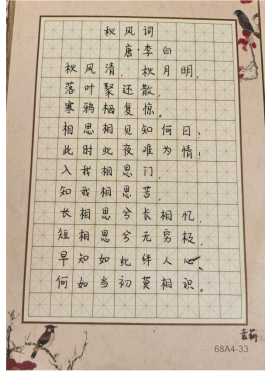 秋风词
唐 李白
秋风清，秋月明，
落叶聚还散，
寒鸦栖复惊。
相思相见知何日、
此时此夜难为情！
入我相思门，
知我相思苦，
长相思兮长相忆，
短相思兮无穷极，
早知如此绊人心，
何如当初莫相识。
68A4-33